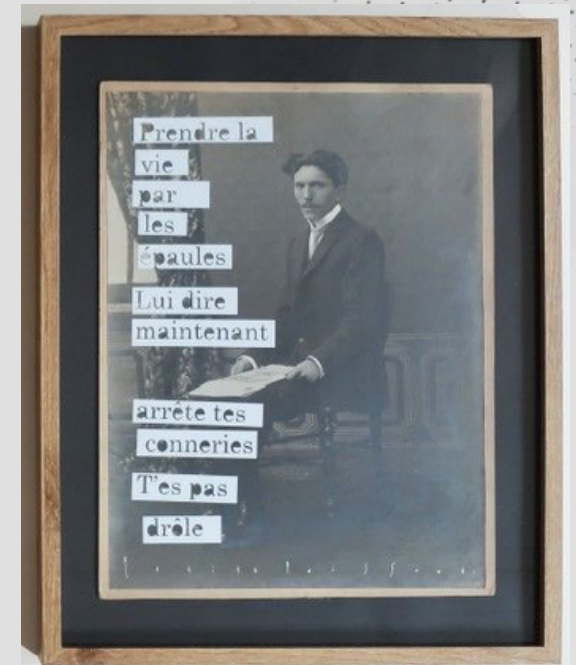 Prendre la
vie
par
les
épaules
Lui dire
maintenant
arrête tes
conneries
T'es pas
drôle